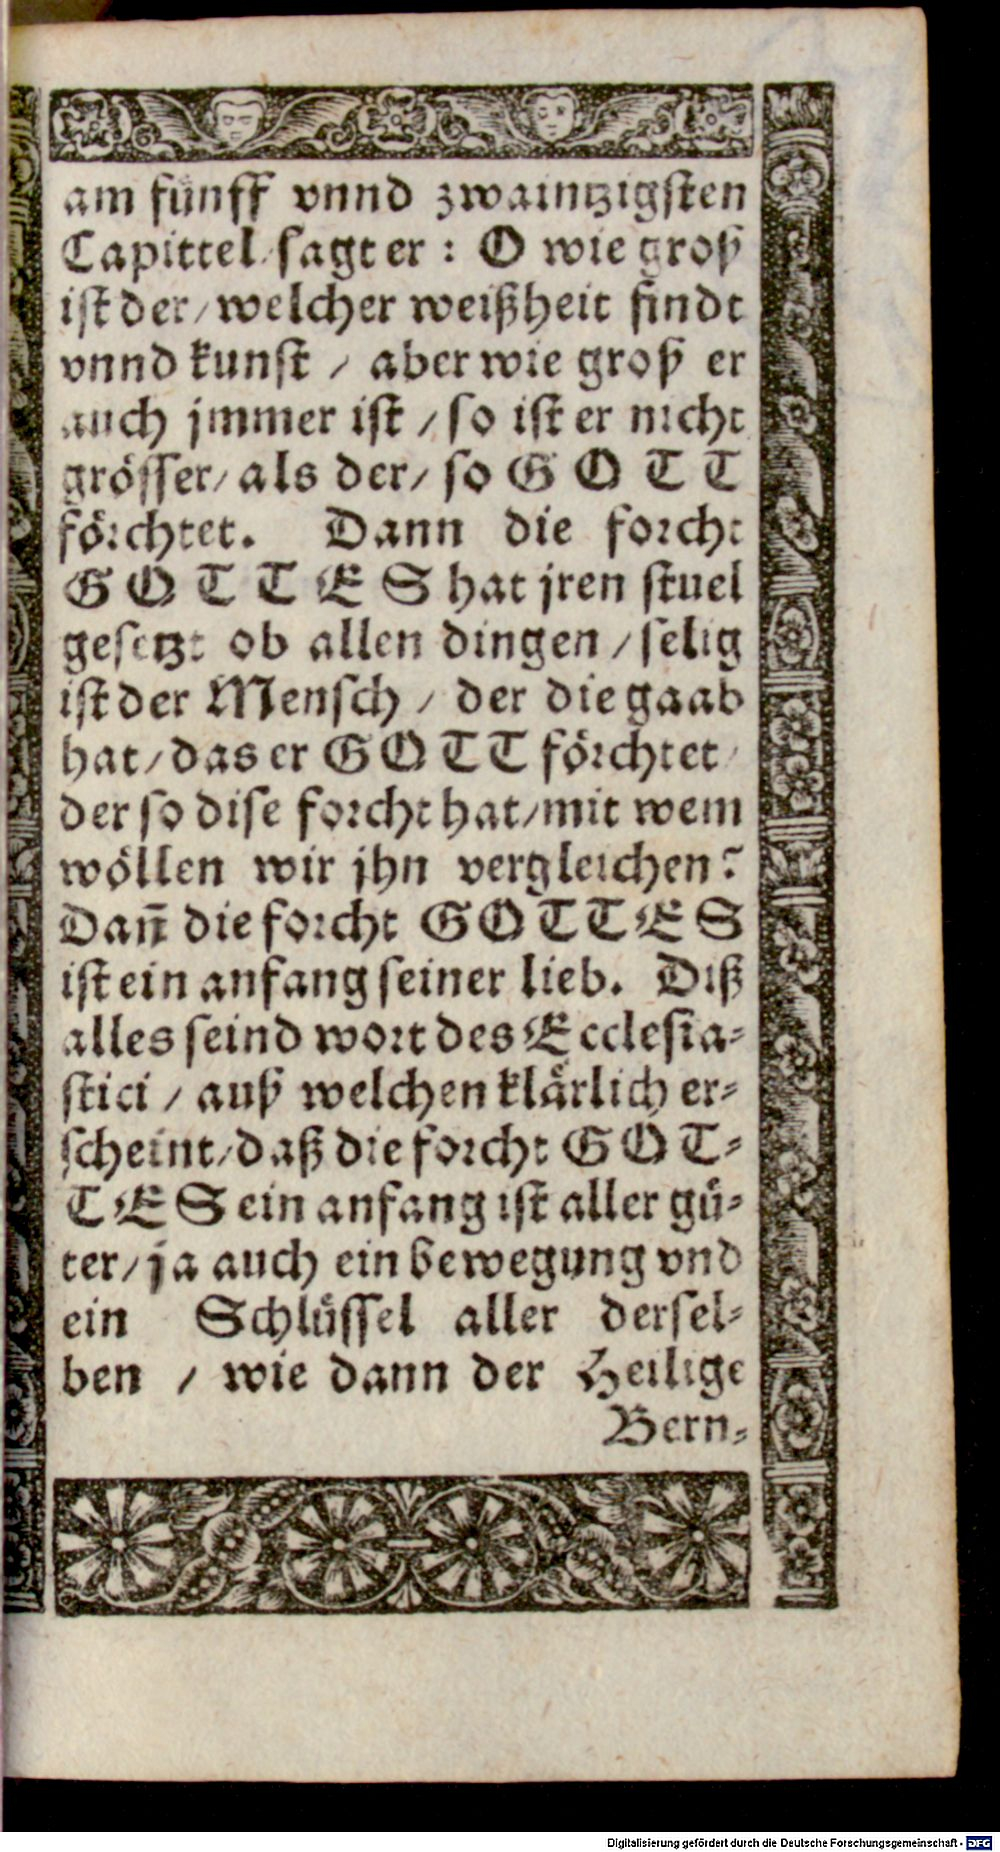 am fünff vnnd zwaintzigsten
Capittel / sagt er : O wie groß
ist der / welcher weißheit findt
vnnd kunst / aber wie groß er
auch jmmer ist / so ist er nicht
grösser / als der / so GOTT
förchtet. Dann die forcht
GOTTES hat jren stuel
gesetzt ob allen dingen / selig
ist der Mensch / der die gaab
hat / das er GOTT förchtet /
der so dise forcht hat / mit wem
wöllen wir jhn vergleichen?
Dañ die forcht GOTTES
ist ein anfang seiner lieb. Diß
alles seind wort des Ecclesia-
stici / auß welchen klärlich er-
scheint / daß die forcht GOT-
TES ein anfang ist aller gü-
ter / ja auch ein bewegung vnd
ein Schlüssel aller dersel-
ben / wie dann der Heilige
Bern-
Digitalisierung gefördert durch die Deutsche Forschungsgemeinschaft - DFG